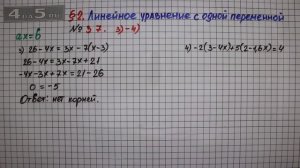 4 on 5.ru
§2. Линейное уравнение с одной переменной
ax=b
№ 37. 3)-4)
3) 26-4x = 3x-7(x-3)
26-4x = 3x-7x+21
-4x-3x+7x = 21-26
0 = -5
Ответ: нет корней.
4) -2(3-4x)+5(2-1,6x)=4